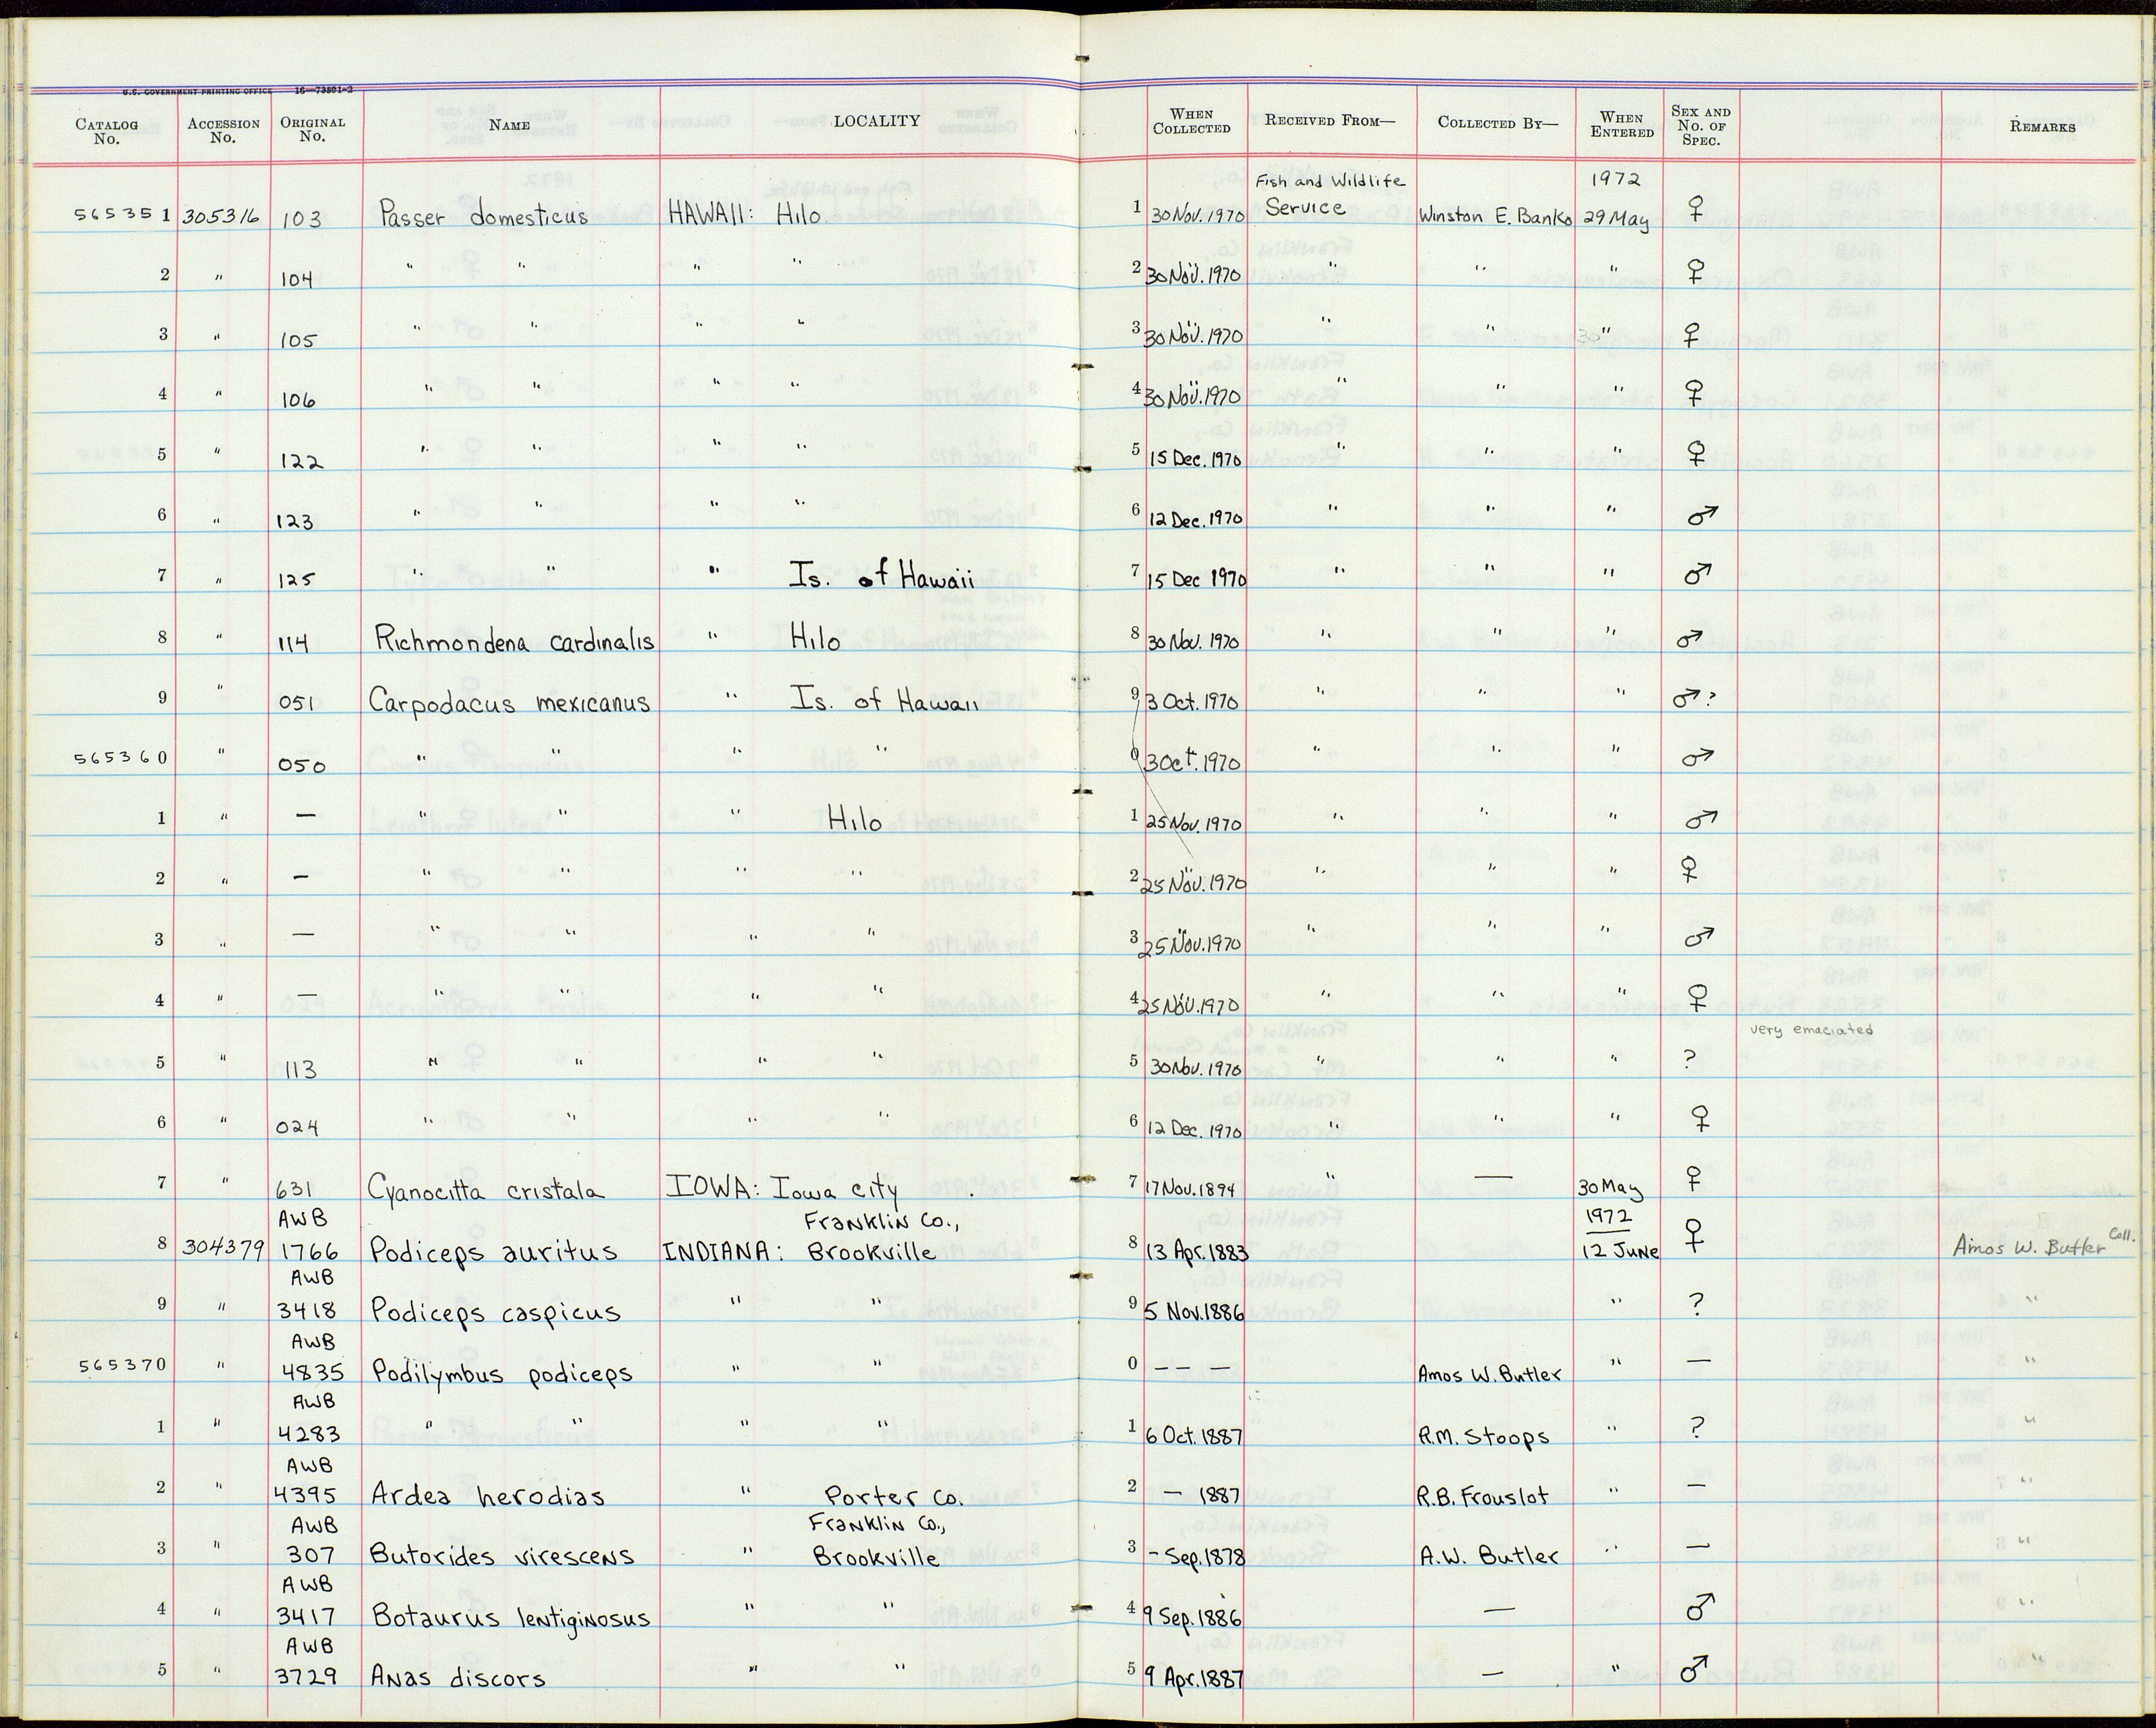 U.S. GOVERNMENT PRINTING OFFICE 16—73591-2
CATALOG No. ACCESSION No. ORIGINAL No. NAME LOCALITY WHEN COLLECTED RECEIVED FROM— COLLECTED BY— WHEN ENTERED SEX AND No. OF SPEC. REMARKS
Fish and Wildlife 1972
565351 305316 103 Passer domesticus HAWAII: Hilo. 1 30 Nov. 1970 Service Winston E. Banko 29 May ♀
2 " 104 " " " " 2 30 Nov. 1970 " " " ♀
3 " 105 " " " " 3 30 Nov. 1970 " " 30 " ♀
4 " 106 " " " " 4 30 Nov. 1970 " " " ♀
5 " 122 " " " " 5 15 Dec. 1970 " " " ♀
6 " 123 " " " " 6 12 Dec. 1970 " " " ♂
7 " 125 " " " Is. of Hawaii 7 15 Dec 1970 " " " ♂
8 " 114 Richmondena cardinalis " Hilo 8 30 Nov. 1970 " " " ♂
9 " 051 Carpodacus mexicanus " Is. of Hawaii 9 3 Oct. 1970 " " " ♂?
565360 " 050 " " " " 0 3 Oct. 1970 " " " ♂
1 " — " " " Hilo 1 25 Nov. 1970 " " " ♂
2 " — " " " " 2 25 Nov. 1970 " " " ♀
3 " — " " " " 3 25 Nov. 1970 " " " ♂
4 " — " " " " 4 25 Nov. 1970 " " " ♀
very emaciated
5 " 113 " " " " 5 30 Nov. 1970 " " " ?
6 " 024 " " " " 6 12 Dec. 1970 " " " ♀
7 " 631 Cyanocitta cristala IOWA: Iowa city 7 17 Nov. 1894 " — 30 May ♀
AWB Franklin Co., 1972
8 304379 1766 Podiceps auritus INDIANA: Brookville 8 13 Apr. 1883 12 June ♀ Amos W. Butler Coll.
AWB
9 " 3418 Podiceps caspicus " " 9 5 Nov. 1886 " ? "
AWB
565370 " 4835 Podilymbus podiceps " " 0 — — — Amos W. Butler " — "
AWB
1 " 4283 " " " " 1 6 Oct. 1887 R.M. Stoops " ? "
AWB
2 " 4395 Ardea herodias " Porter Co. 2 — 1887 R.B. Frouslot " — "
AWB Franklin Co.,
3 " 307 Butorides virescens " Brookville 3 - Sep. 1878 A.W. Butler " — "
AWB
4 " 3417 Botaurus lentiginosus " " 4 9 Sep. 1886 — ♂ "
AWB
5 " 3729 Anas discors " " 5 9 Apr. 1887 — " ♂ "